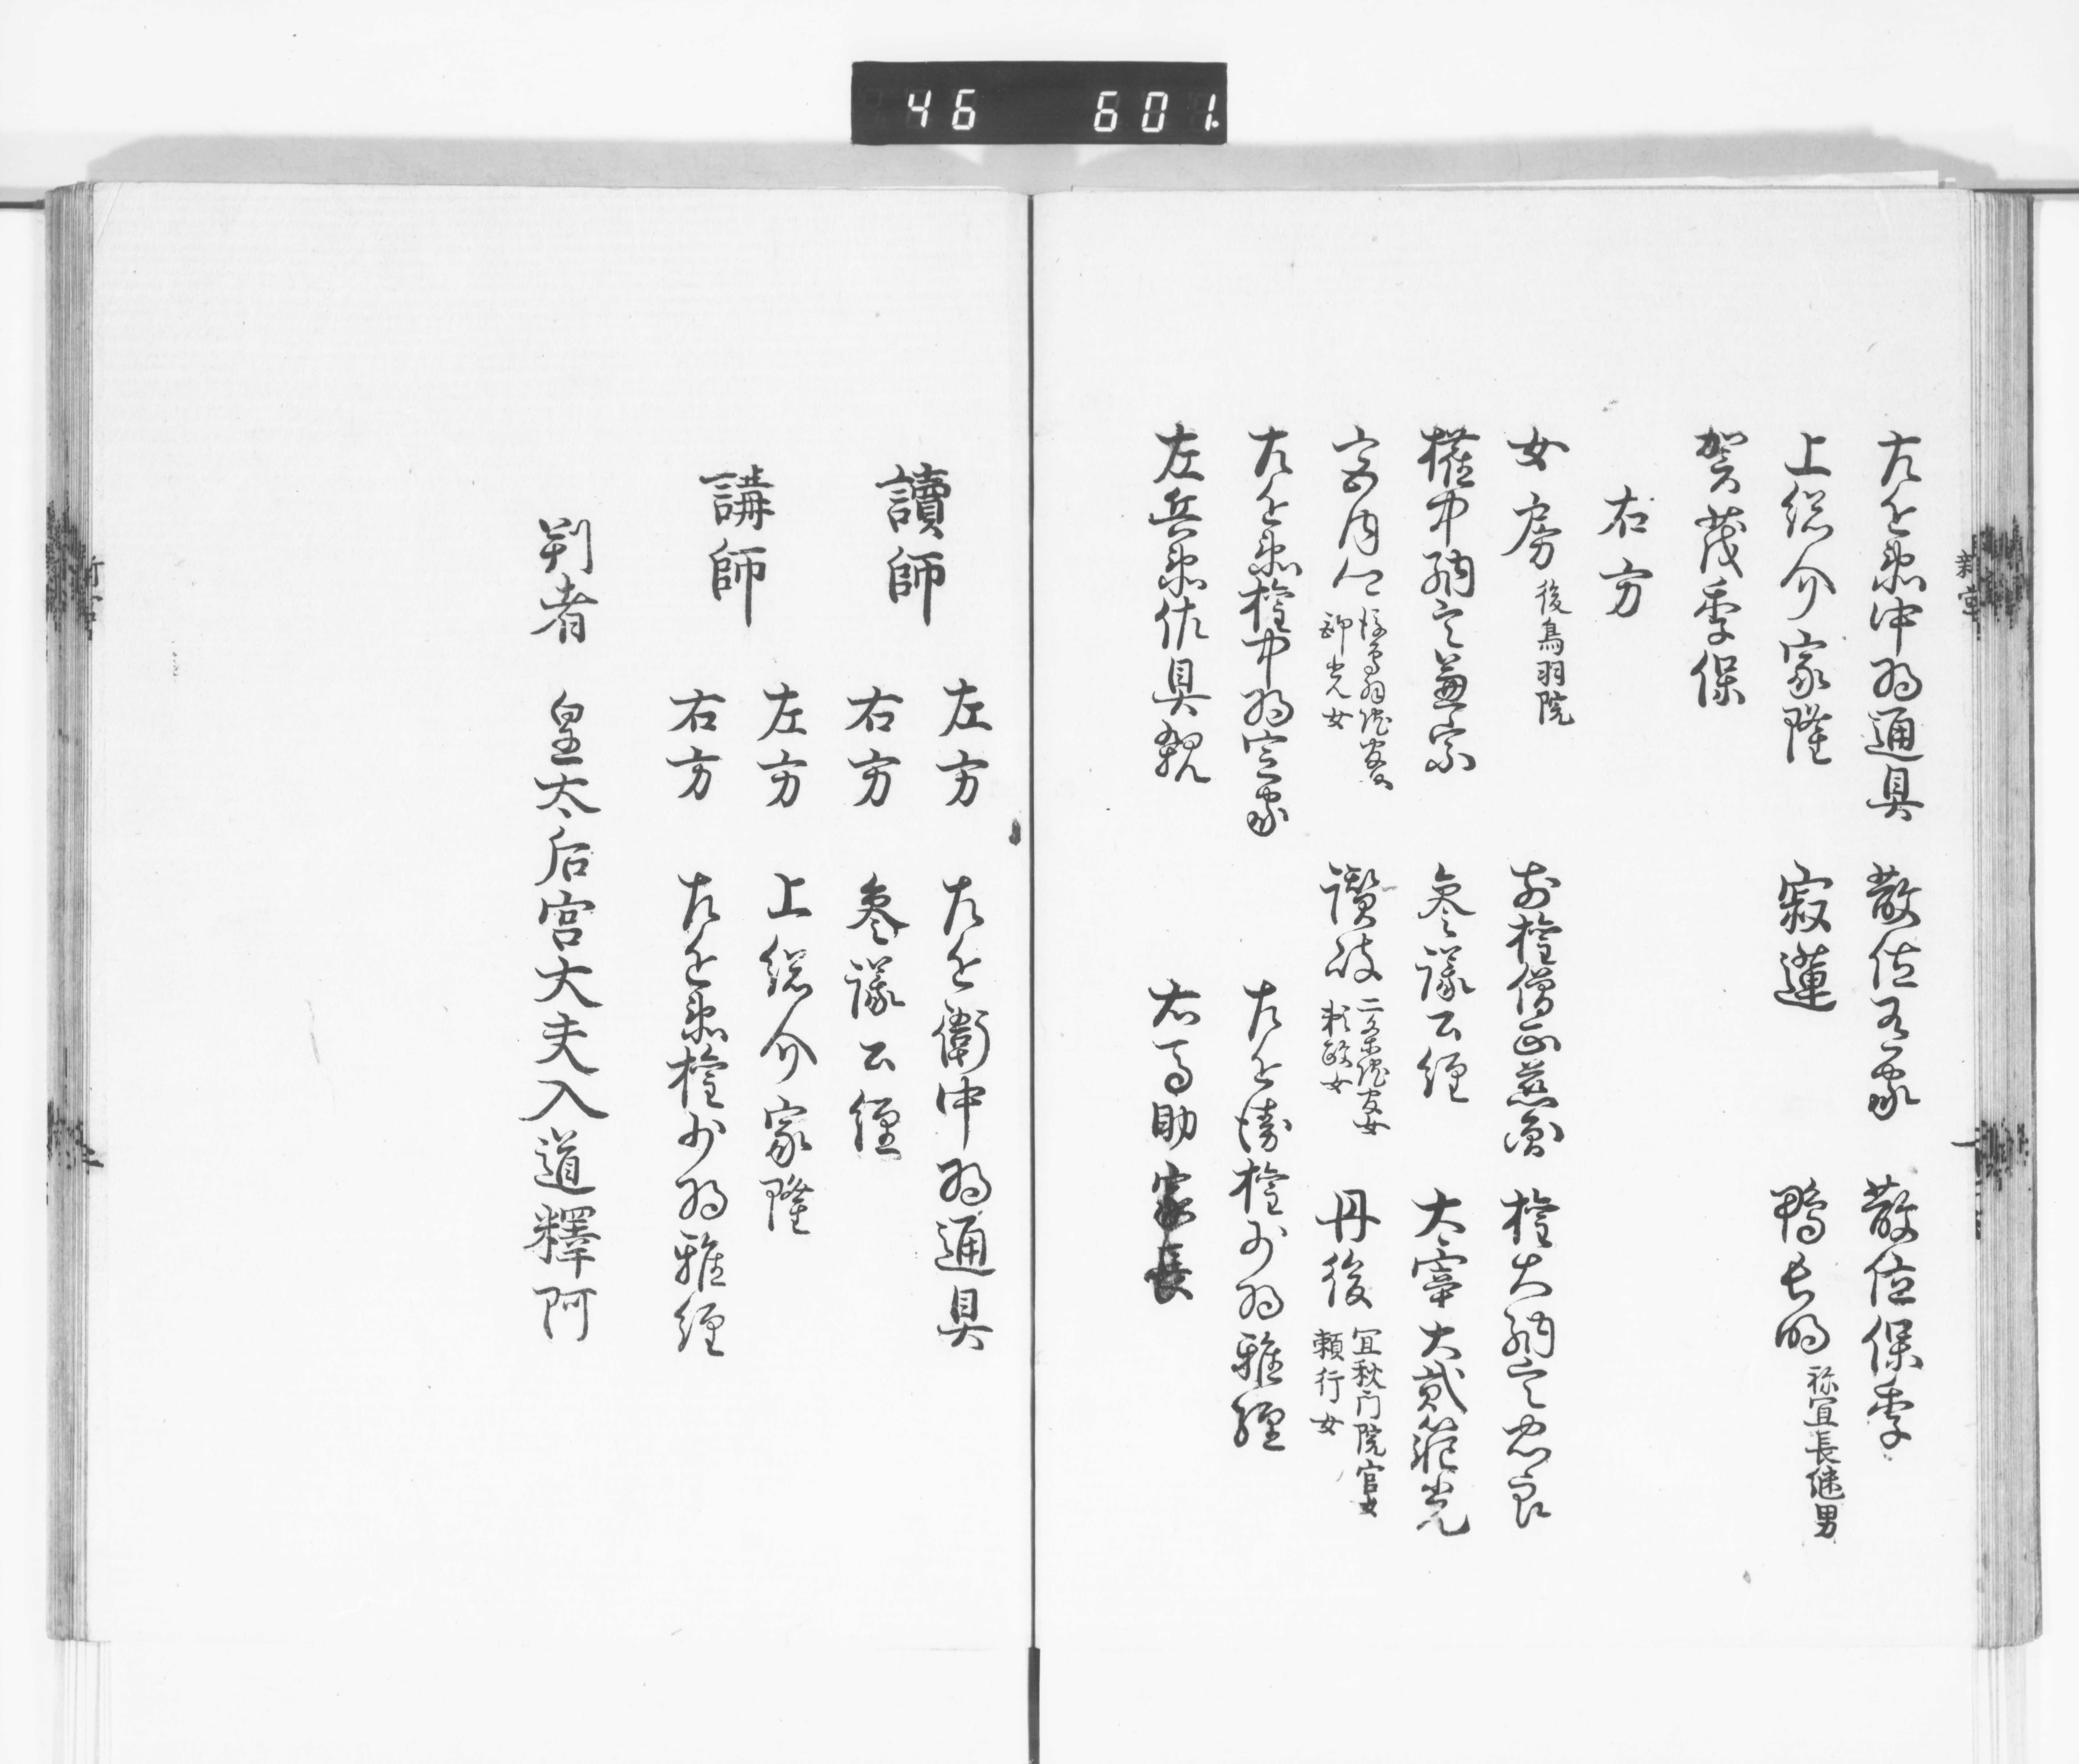 46 601
左近衛中将通具 散位有家 散位保季
上総介家隆 寂蓮 鴨長明 祢宜長継男
賀茂季保
右方
女房 後鳥羽院 前権僧正慈円 権大納言忠良
権中納言兼宗 参議公経 大宰大貳範光
宮内卿 後鳥羽院官女 師光女 讃岐 二条院官女 頼政女 丹後 宜秋门院官女 頼行女
左近衛権中将定家 左近衛権少将雅経
左兵衛佐具親 右馬助家長
讀師 左方 左近衛中将通具
右方 参議公経
講師 左方 上総介家隆
右方 左近衛権少将雅経
判者 皇太后宮大夫入道釋阿